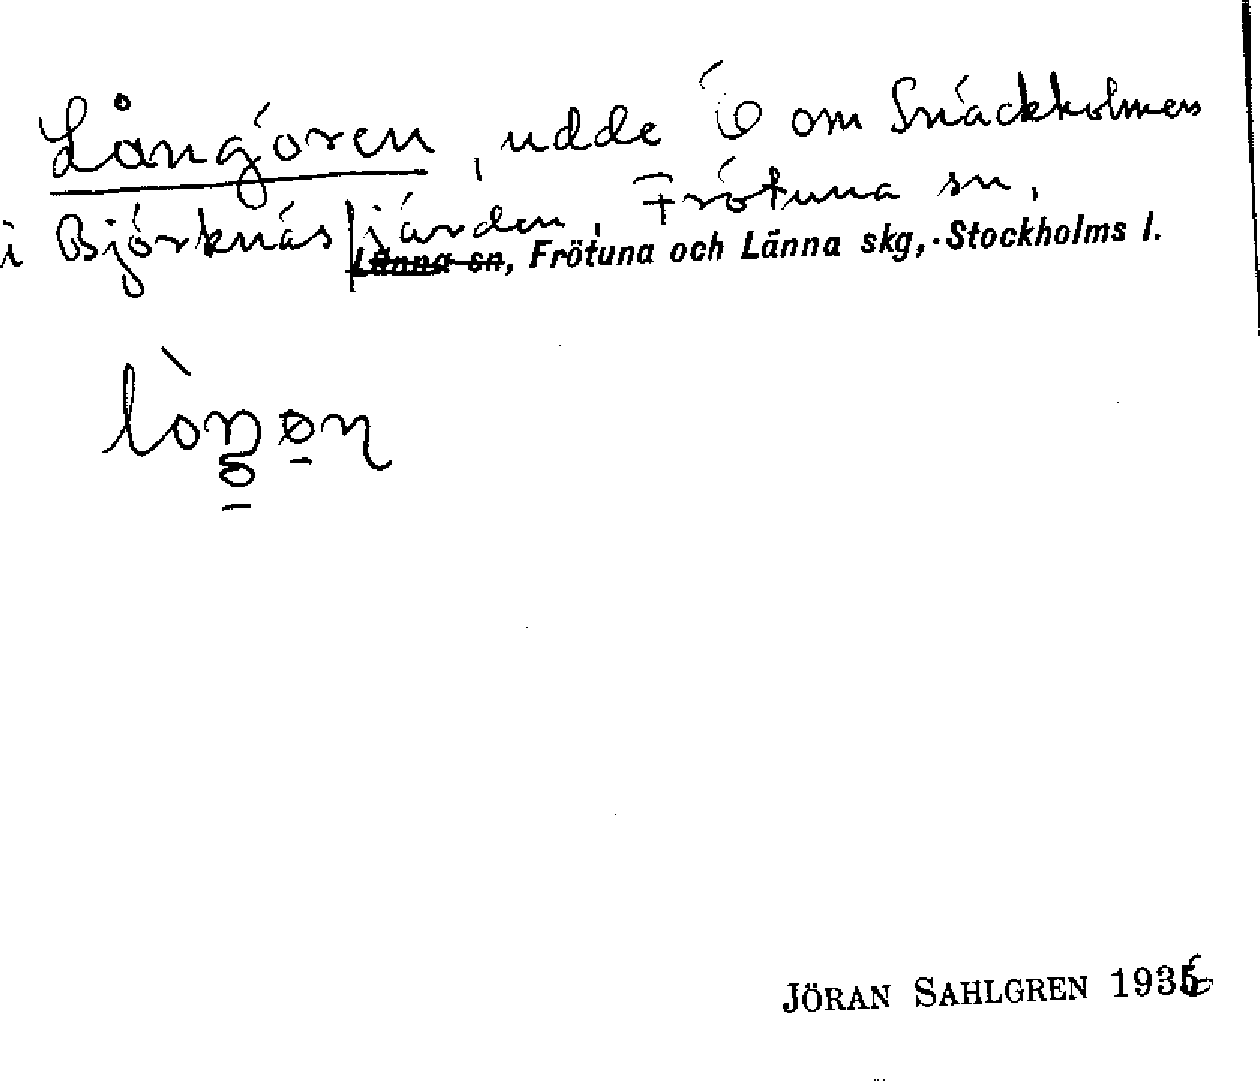 Långören, udde Ö om Snäckholmen
i Björknäsfjärden, Frötuna sn,
Länna sn, Frötuna och Länna skg, Stockholms l.
JÖRAN SAHLGREN 1936